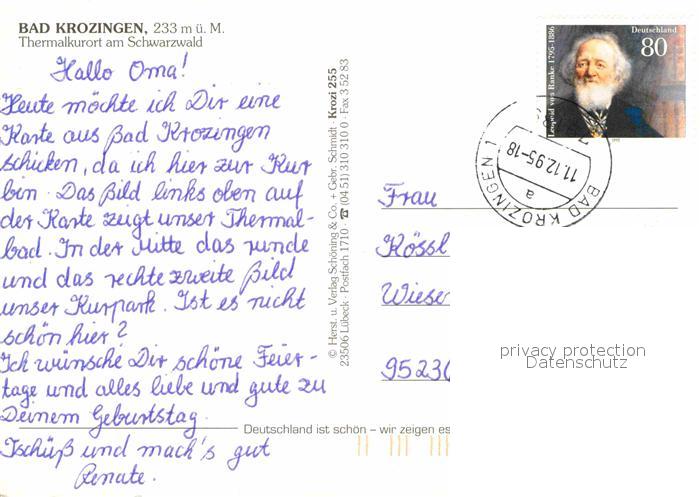 BAD KROZINGEN, 233 m ü. M.
Thermalkurort am Schwarzwald
Hallo Oma!
Heute möchte ich Dir eine
Karte aus Bad Krozingen
schicken, da ich hier zur Kur
bin. Das Bild links oben auf
der Karte zeigt unser Thermal-
bad. In der Mitte das runde
und das rechte zweite Bild
unser Kurpark. Ist es nicht
schön hier?
Ich wünsche Dir schöne Feier-
tage und alles liebe und gute zu
Deinem Geburtstag.
Tschüß und mach's gut
Renate.
Deutschland ist schön – wir zeigen es
© Herst. u. Verlag Schöning & Co. + Gebr. Schmidt Krozi 255
23506 Lübeck · Postfach 1710 · ☎ (04 51) 310 310 0 · Fax 3 52 83
Deutschland
80
Leopold von Ranke 1795-1886
11.12.95-18
a
BAD KROZINGEN 1
Frau
Kössl
Wieser
9523
privacy protection
Datenschutz